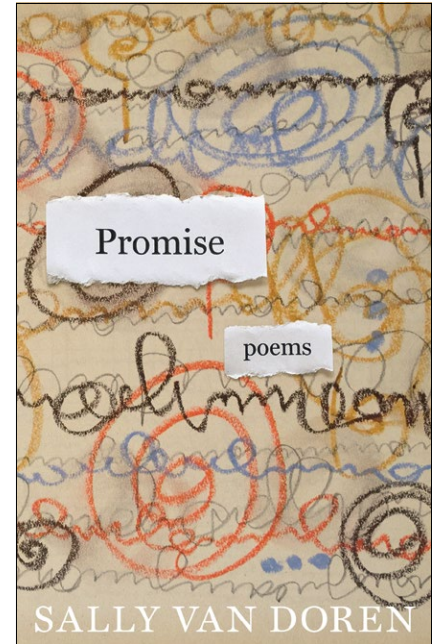 Promise
poems
SALLY VAN DOREN